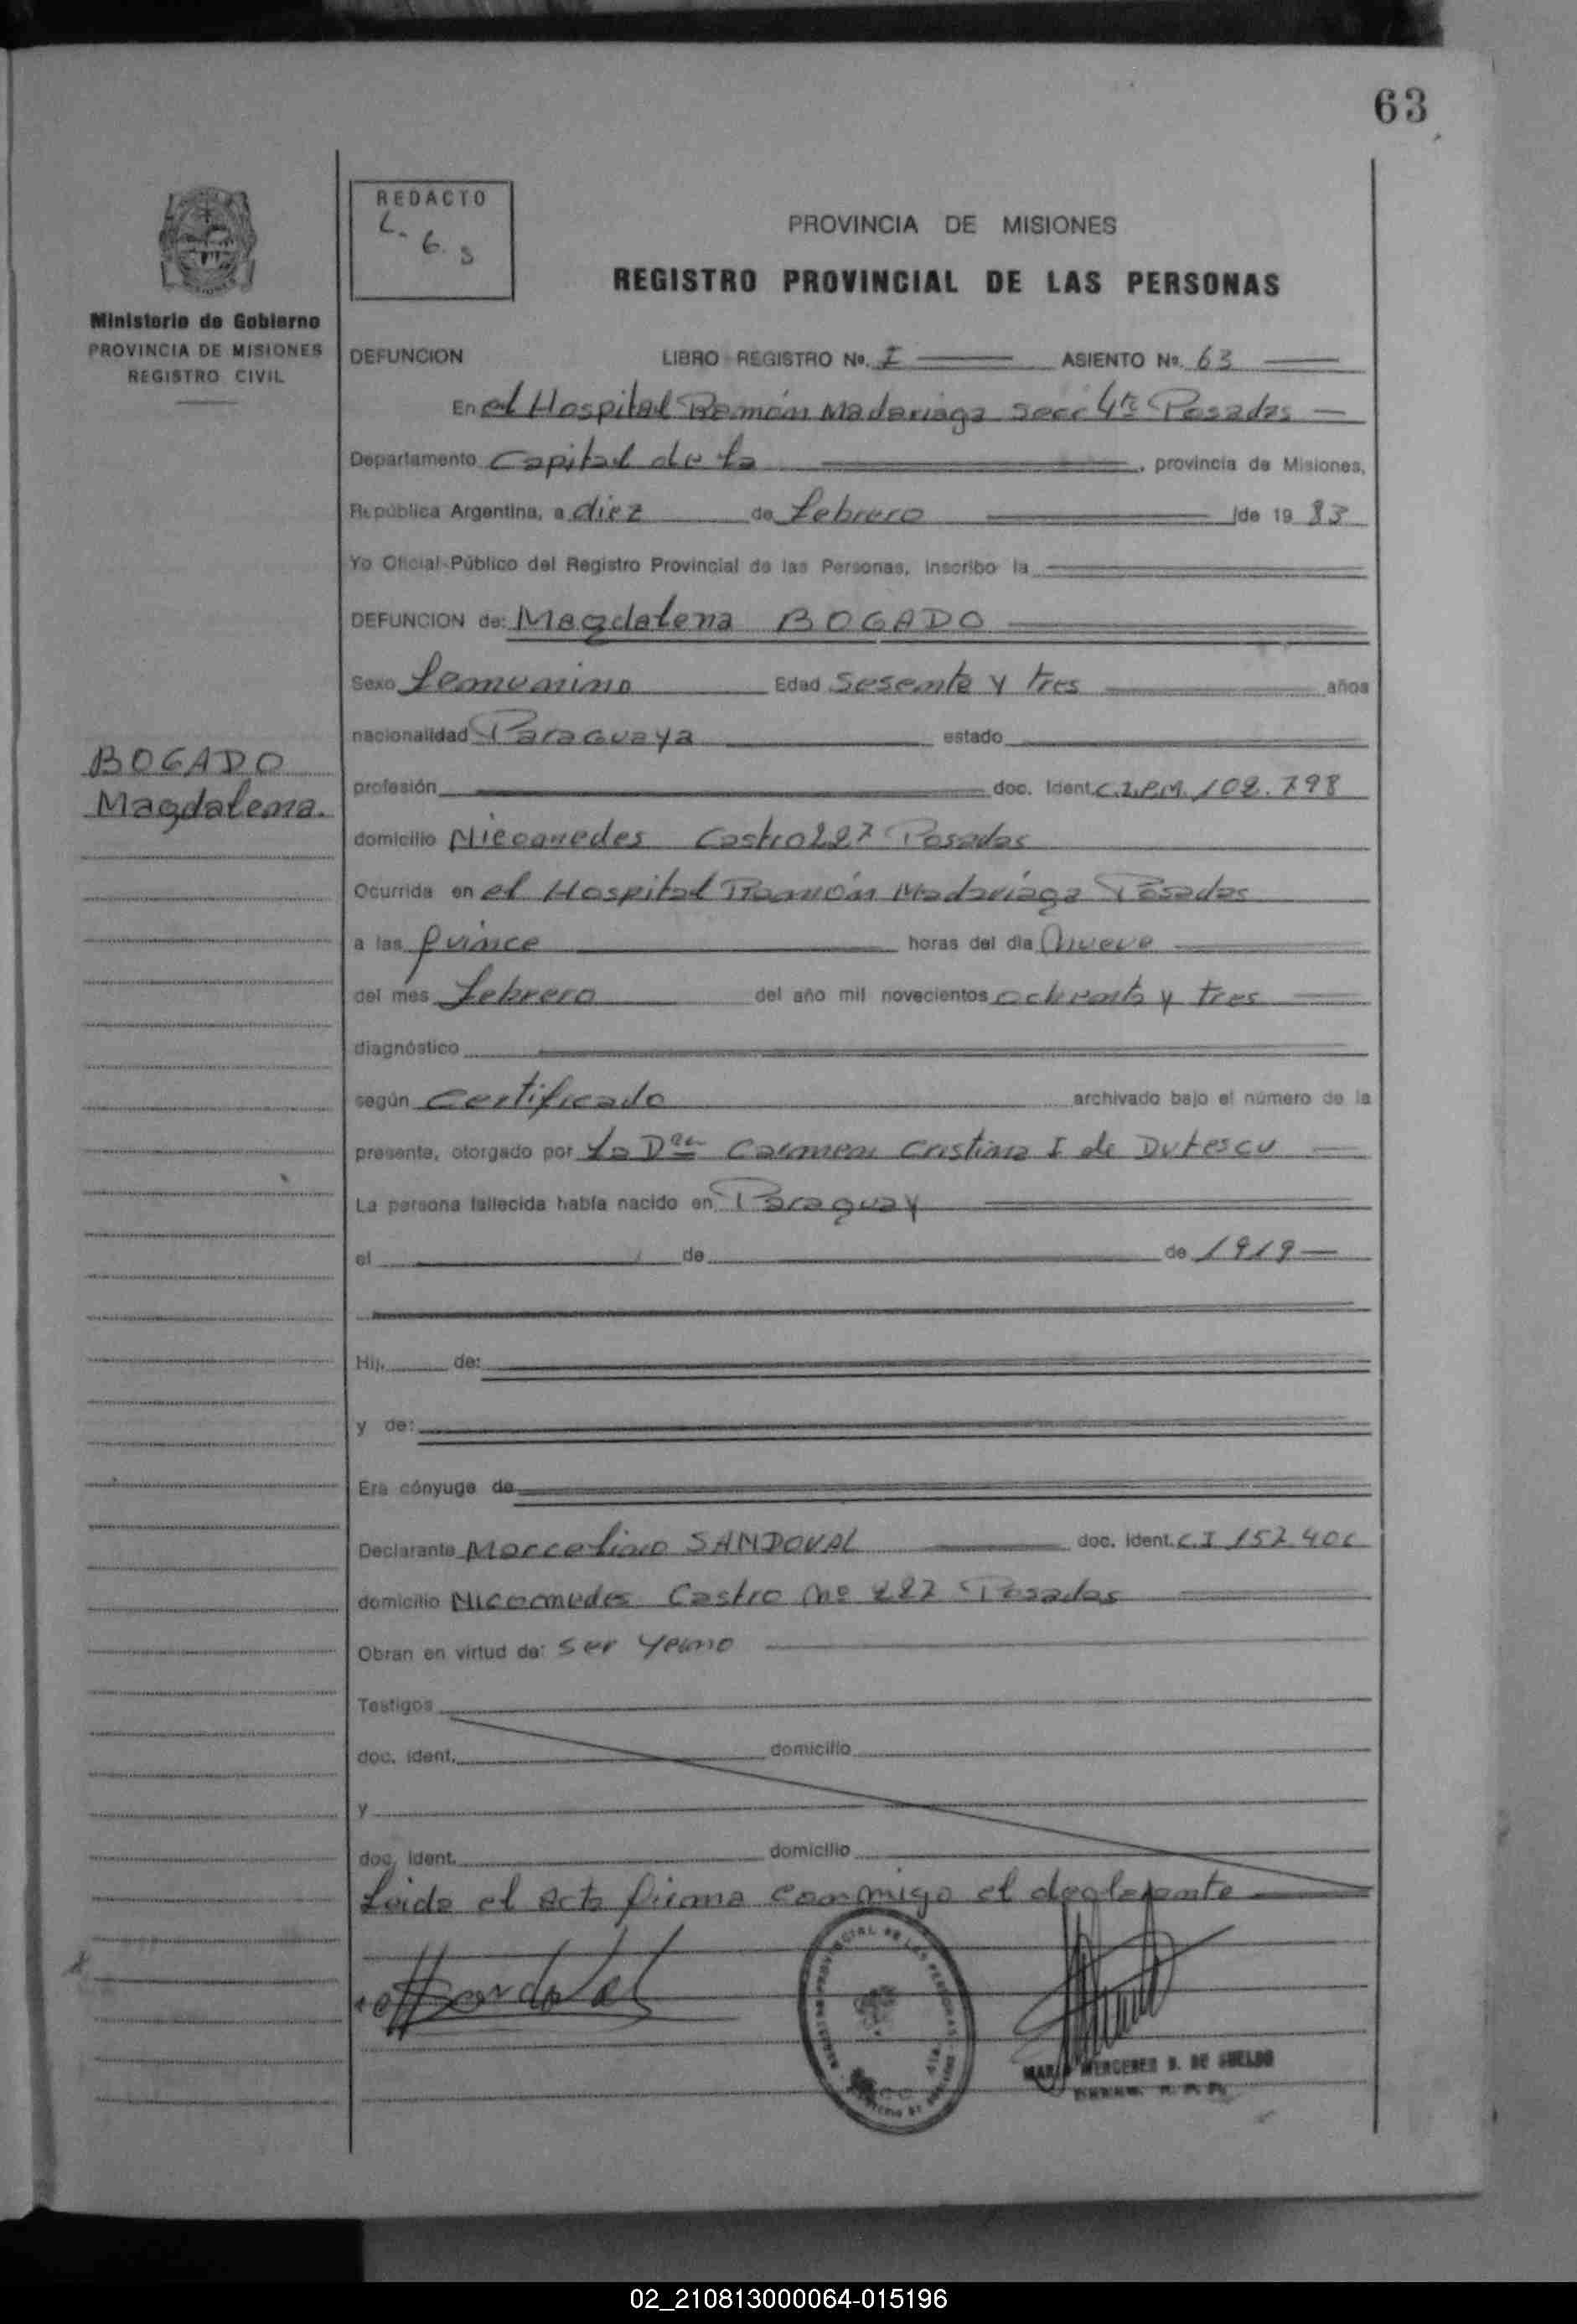 63
REDACTO
L. G. S
PROVINCIA DE MISIONES
REGISTRO PROVINCIAL DE LAS PERSONAS
Ministerio de Gobierno
PROVINCIA DE MISIONES
REGISTRO CIVIL
DEFUNCION LIBRO REGISTRO No. I ASIENTO No. 63
En el Hospital Ramón Madariaga Secc 4ta Posadas
Departamento Capital de la , provincia de Misiones,
República Argentina, a diez de febrero de 19 83
Yo Oficial Público del Registro Provincial de las Personas, inscribo la
DEFUNCION de: Magdalena BOGADO
Sexo femenino Edad Sesenta y tres años
nacionalidad Paraguaya estado
BOGADO
Magdalena.
profesión doc. Ident. C.I.P.M. 102.798
domicilio Nicomedes Castro 227 Posadas
Ocurrida en el Hospital Ramón Madariaga Posadas
a las quince horas del día nueve
del mes febrero del año mil novecientos ochenta y tres
diagnóstico
según certificado archivado bajo el número de la
presente, otorgado por La Dra Carmen Cristina I de Dutescu
La persona fallecida había nacido en Paraguay
el de de 1919
Hij de:
y de:
Era cónyuge de
Declarante Marcelino SANDOVAL doc. ident. C.I 152.406
domicilio Nicomedes Castro No 227 Posadas
Obran en virtud de: ser yerno
Testigos
doc. ident. domicilio
y
doc. ident. domicilio
Leida el acta firma conmigo el declarante
Sandoval
02_210813000064-015196